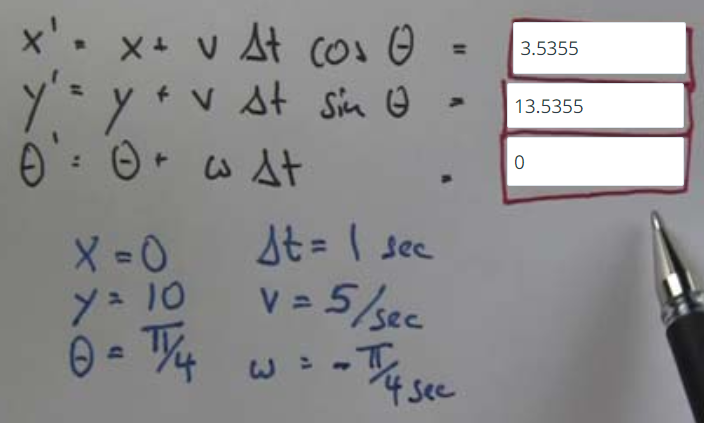 x' = x + v Δt cos θ = 3.5355
y' = y + v Δt sin θ = 13.5355
θ' = θ + ω Δt = 0
X = 0 Δt = 1 sec
y = 10 v = 5/sec
θ = π/4 ω = -π/4 sec